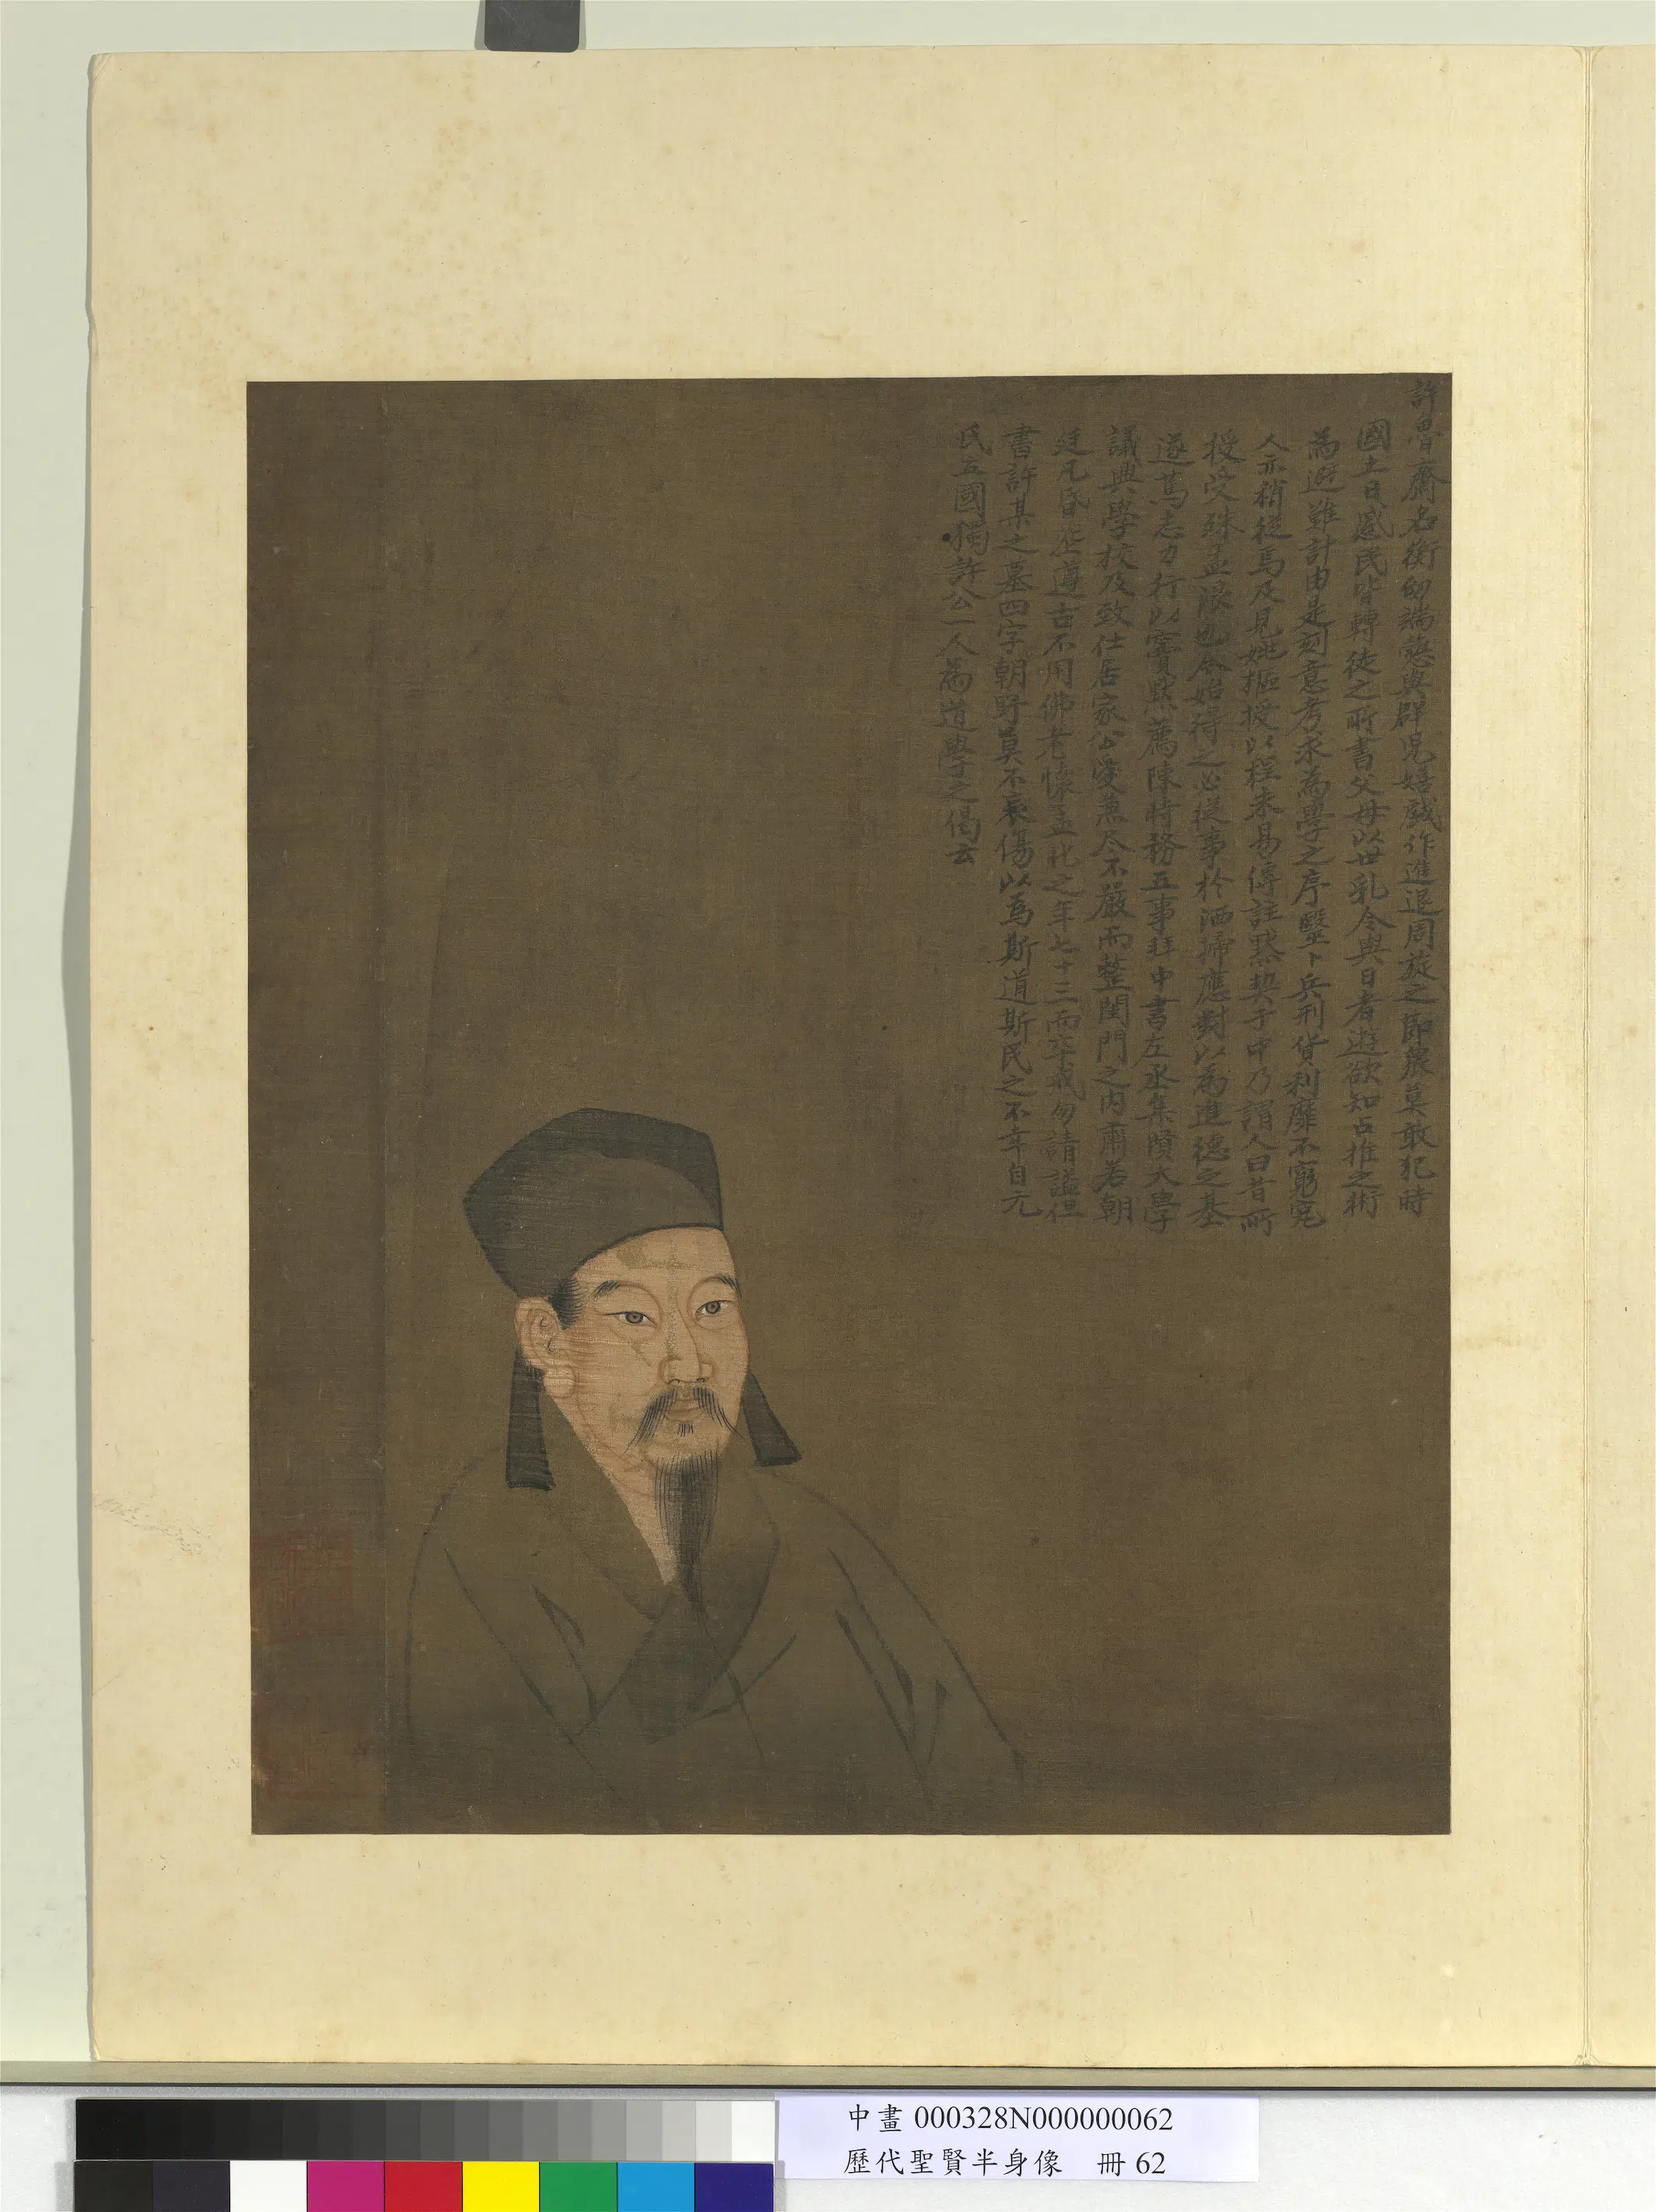 許魯齋名衡幼端慤與群児嬉戲作進退周旋之節衆莫敢犯時
國土日蹙民皆轉徙之所書父母以世乱令與日者遊欲知占推之術
為避難計由是刻意考求為學之序毉卜兵刑貨利靡不窮究
人亦稍從焉及見姚樞授以程朱易傳註默契于中乃謂人曰昔所
授受殊孟浪也今始得之必從事於洒掃應對以為進德之基
遂篤志力行以竇默薦陳時務五事拜中書左丞集賢大學
議典學校及致仕居家公愛兼尽不嚴而整閨門之内肅若朝
廷凡昏喪遵古不用佛老懷孟化之年七十三而卒戒勿請謚但
書許某之墓四字朝野莫不哀傷以爲斯道斯民之不幸自元
氏立國獨許公一人為道學之倡云
中畫 000328N000000062
歷代聖賢半身像 冊 62